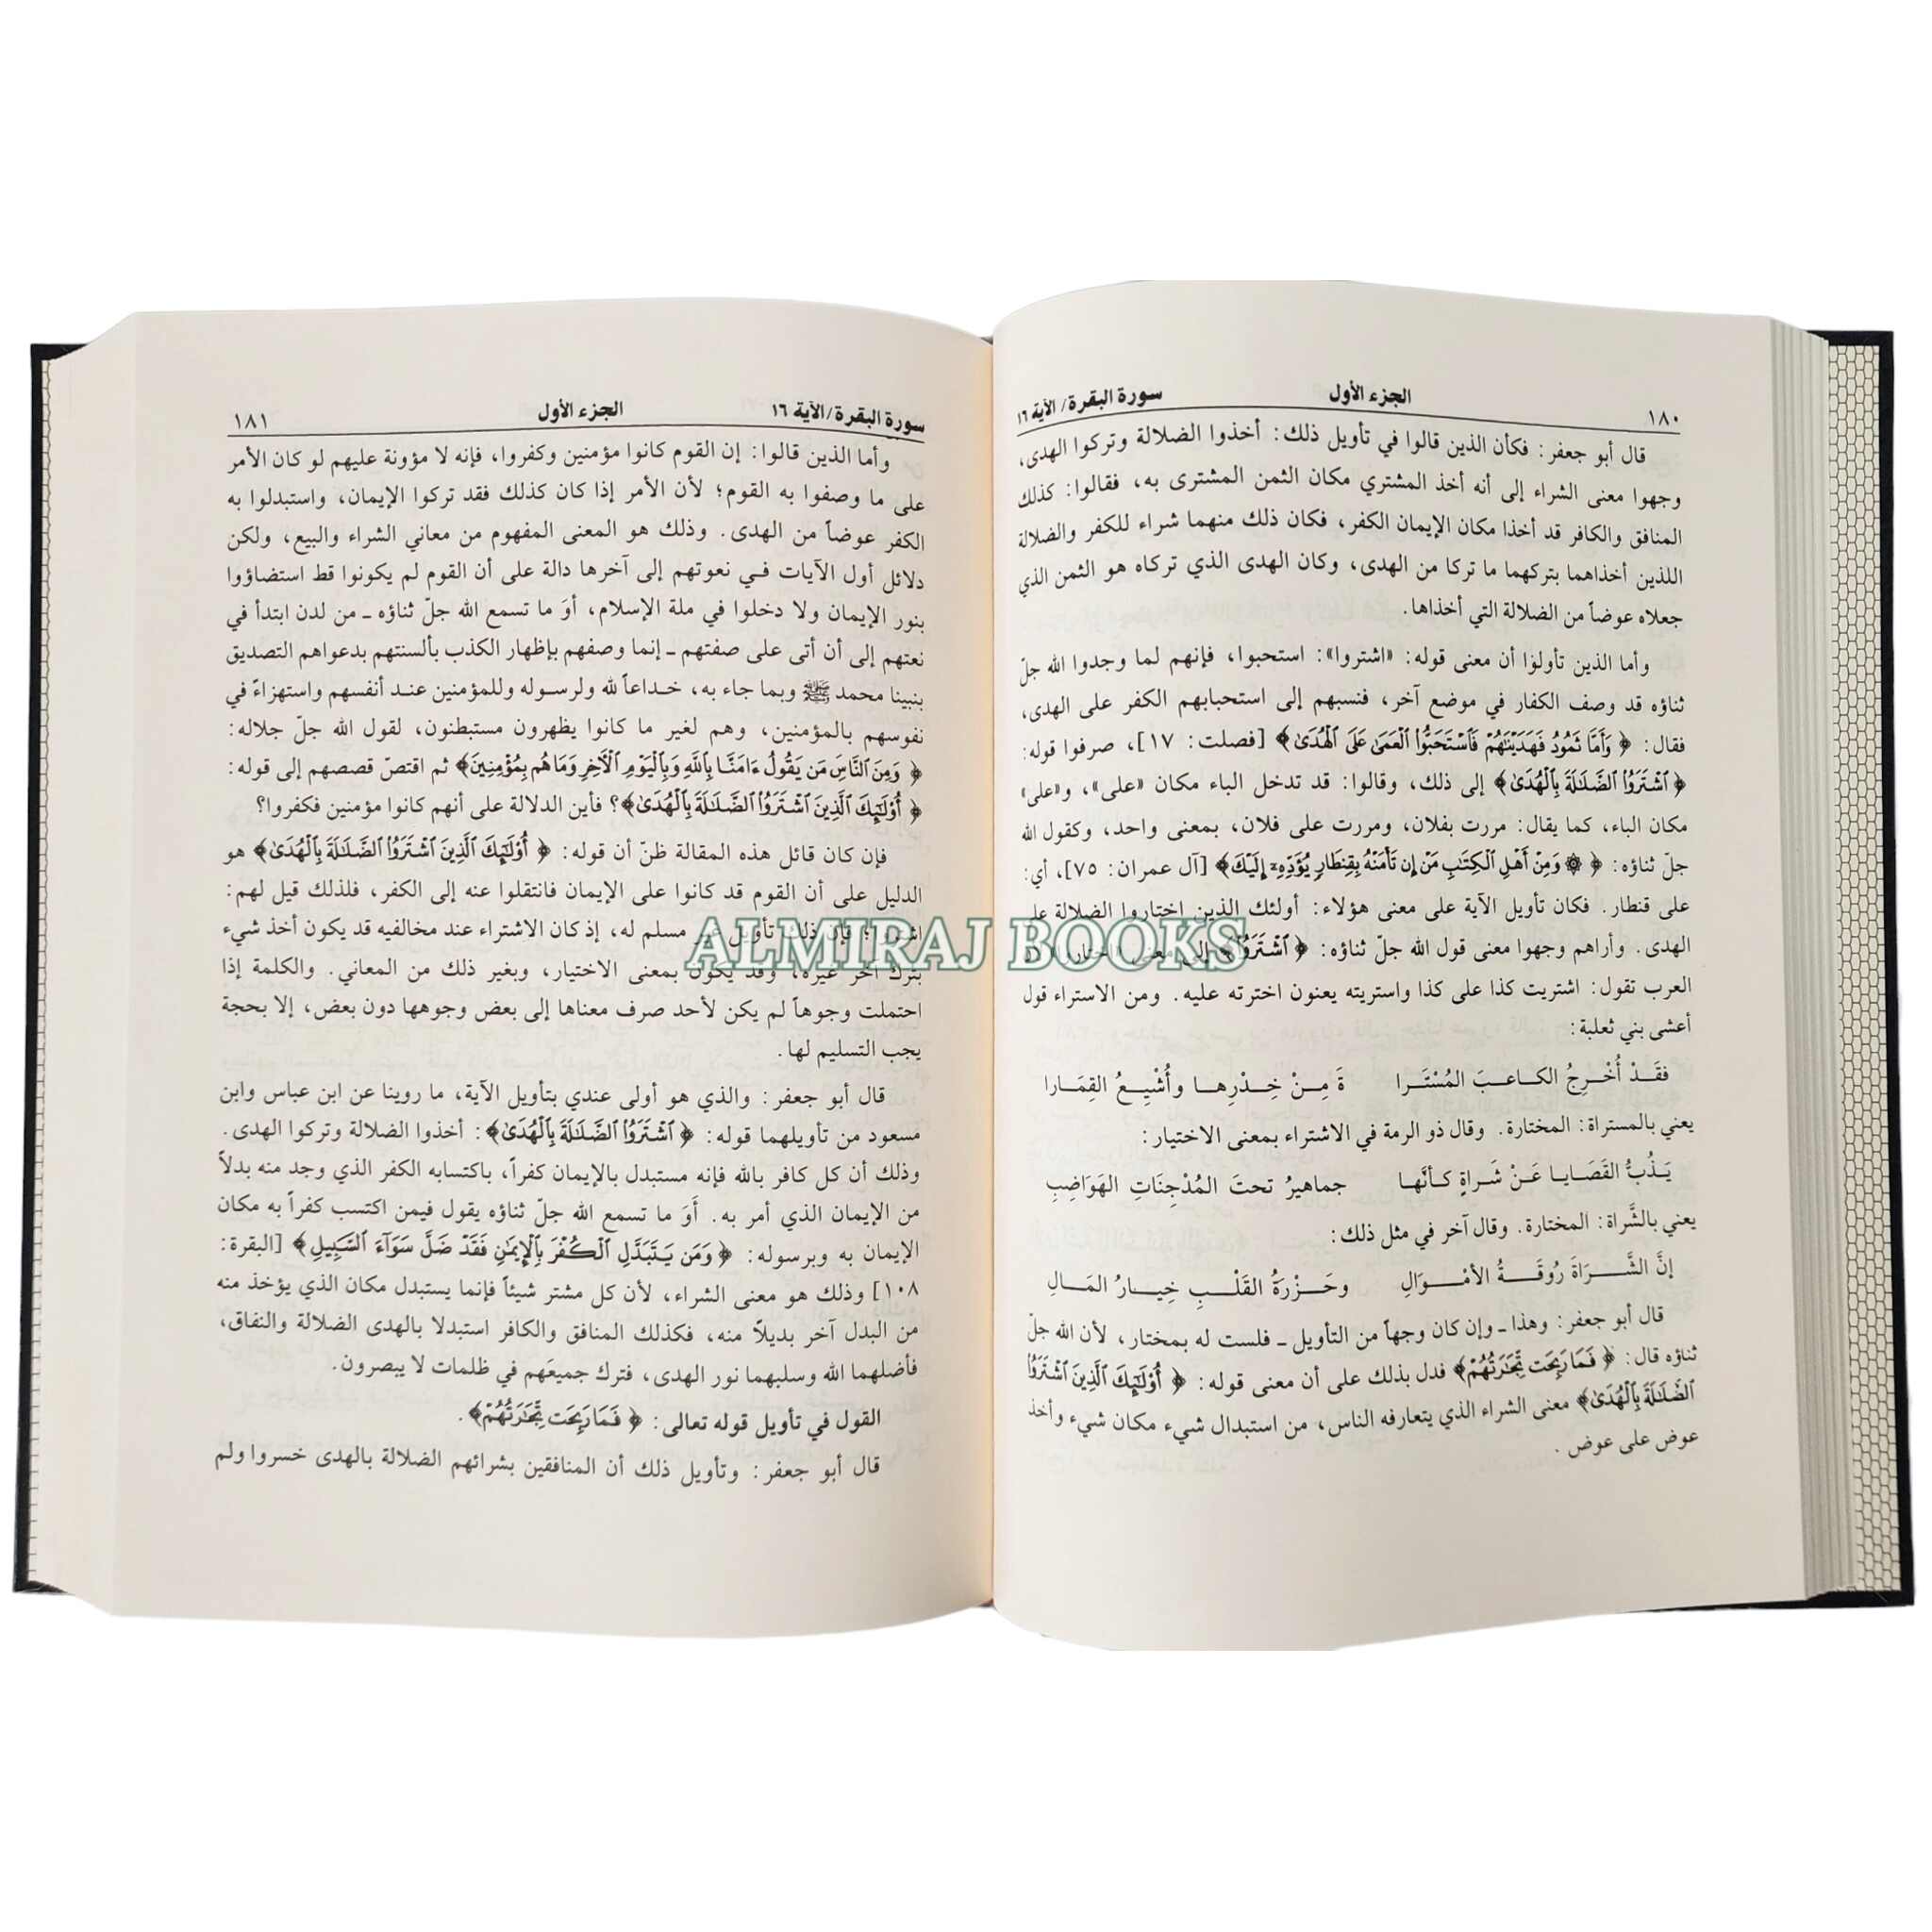 ١٨٠ الجزء الأول سورة البقرة/ الآية ١٦
قال أبو جعفر: فكأن الذين قالوا في تأويل ذلك: أخذوا الضلالة وتركوا الهدى،
وجهوا معنى الشراء إلى أنه أخذ المشتري مكان الثمن المشترى به، فقالوا: كذلك
المنافق والكافر قد أخذا مكان الإيمان الكفر، فكان ذلك منهما شراء للكفر والضلالة
اللذين أخذاهما بتركهما ما تركا من الهدى، وكان الهدى الذي تركاه هو الثمن الذي
جعلاه عوضاً من الضلالة التي أخذاها.
وأما الذين تأولوا أن معنى قوله: «اشتروا»: استحبوا، فإنهم لما وجدوا الله جلّ
ثناؤه قد وصف الكفار في موضع آخر، فنسبهم إلى استحبابهم الكفر على الهدى،
فقال: ﴿وَأَمَّا ثَمُودُ فَهَدَيْنَٰهُمْ فَٱسْتَحَبُّوا۟ ٱلْعَمَىٰ عَلَى ٱلْهُدَىٰ﴾ [فصلت: ١٧]، صرفوا قوله:
﴿ٱشْتَرَوُا۟ ٱلضَّلَٰلَةَ بِٱلْهُدَىٰ﴾ إلى ذلك، وقالوا: قد تدخل الباء مكان «على»، و«على»
مكان الباء، كما يقال: مررت بفلان، ومررت على فلان، بمعنى واحد، وكقول الله
جلّ ثناؤه: ﴿۞ وَمِنْ أَهْلِ ٱلْكِتَٰبِ مَنْ إِن تَأْمَنْهُ بِقِنطَارٍ يُؤَدِّهِۦٓ إِلَيْكَ﴾ [آل عمران: ٧٥]، أي:
على قنطار. فكان تأويل الآية على معنى هؤلاء: أولئك الذين اختاروا الضلالة على
الهدى. وأراهم وجهوا معنى قول الله جلّ ثناؤه: ﴿ٱشْتَرَوُا۟﴾ إلى معنى اختاروا، لأن
العرب تقول: اشتريت كذا على كذا واستريته يعنون اخترته عليه. ومن الاستراء قول
أعشى بني ثعلبة:
فقَدْ أُخْرِجُ الكاعبَ المُسْتَرا ةَ مِنْ خِدْرِها وأُشْيِعُ القِمَارا
يعني بالمستراة: المختارة. وقال ذو الرمة في الاشتراء بمعنى الاختيار:
يَذُبُّ القَصَايا عَنْ شَراةٍ كأنَّها جماهيرُ تحتَ المُدْجِنَاتِ الهَوَاضِبِ
يعني بالشَّراة: المختارة. وقال آخر في مثل ذلك:
إنَّ الشَّرَاةَ رُوقَةُ الأمْوَالِ وحَزْرَةُ القَلْبِ خِيارُ المَالِ
قال أبو جعفر: وهذا ـ وإن كان وجهاً من التأويل ـ فلست له بمختار، لأن الله جلّ
ثناؤه قال: ﴿فَمَا رَبِحَت تِّجَٰرَتُهُمْ﴾ فدل بذلك على أن معنى قوله: ﴿أُو۟لَٰٓئِكَ ٱلَّذِينَ ٱشْتَرَوُا۟
ٱلضَّلَٰلَةَ بِٱلْهُدَىٰ﴾ معنى الشراء الذي يتعارفه الناس، من استبدال شيء مكان شيء وأخذ
عوض على عوض.
سورة البقرة/الآية ١٦ الجزء الأول ١٨١
وأما الذين قالوا: إن القوم كانوا مؤمنين وكفروا، فإنه لا مؤونة عليهم لو كان الأمر
على ما وصفوا به القوم؛ لأن الأمر إذا كان كذلك فقد تركوا الإيمان، واستبدلوا به
الكفر عوضاً من الهدى. وذلك هو المعنى المفهوم من معاني الشراء والبيع، ولكن
دلائل أول الآيات في نعوتهم إلى آخرها دالة على أن القوم لم يكونوا قط استضاؤوا
بنور الإيمان ولا دخلوا في ملة الإسلام، أوَ ما تسمع الله جلّ ثناؤه ـ من لدن ابتدأ في
نعتهم إلى أن أتى على صفتهم ـ إنما وصفهم بإظهار الكذب بألسنتهم بدعواهم التصديق
بنبينا محمد ﷺ وبما جاء به، خداعاً لله ولرسوله وللمؤمنين عند أنفسهم واستهزاءً في
نفوسهم بالمؤمنين، وهم لغير ما كانوا يظهرون مستبطنون، لقول الله جلّ جلاله:
﴿وَمِنَ ٱلنَّاسِ مَن يَقُولُ ءَامَنَّا بِٱللَّهِ وَبِٱلْيَوْمِ ٱلْءَاخِرِ وَمَا هُم بِمُؤْمِنِينَ﴾ ثم اقتصّ قصصهم إلى قوله:
﴿أُو۟لَٰٓئِكَ ٱلَّذِينَ ٱشْتَرَوُا۟ ٱلضَّلَٰلَةَ بِٱلْهُدَىٰ﴾؟ فأين الدلالة على أنهم كانوا مؤمنين فكفروا؟
فإن كان قائل هذه المقالة ظنّ أن قوله: ﴿أُو۟لَٰٓئِكَ ٱلَّذِينَ ٱشْتَرَوُا۟ ٱلضَّلَٰلَةَ بِٱلْهُدَىٰ﴾ هو
الدليل على أن القوم قد كانوا على الإيمان فانتقلوا عنه إلى الكفر، فلذلك قيل لهم:
اشتروا؛ فإن ذلك تأويل غير مسلم له، إذ كان الاشتراء عند مخالفيه قد يكون أخذ شيء
بترك آخر غيره، وقد يكون بمعنى الاختيار، وبغير ذلك من المعاني. والكلمة إذا
احتملت وجوهاً لم يكن لأحد صرف معناها إلى بعض وجوهها دون بعض، إلا بحجة
يجب التسليم لها.
قال أبو جعفر: والذي هو أولى عندي بتأويل الآية، ما روينا عن ابن عباس وابن
مسعود من تأويلهما قوله: ﴿ٱشْتَرَوُا۟ ٱلضَّلَٰلَةَ بِٱلْهُدَىٰ﴾: أخذوا الضلالة وتركوا الهدى.
وذلك أن كل كافر بالله فإنه مستبدل بالإيمان كفراً، باكتسابه الكفر الذي وجد منه بدلاً
من الإيمان الذي أمر به. أَوَ ما تسمع الله جلّ ثناؤه يقول فيمن اكتسب كفراً به مكان
الإيمان به وبرسوله: ﴿وَمَن يَتَبَدَّلِ ٱلْكُفْرَ بِٱلْإِيمَٰنِ فَقَدْ ضَلَّ سَوَآءَ ٱلسَّبِيلِ﴾ [البقرة:
١٠٨] وذلك هو معنى الشراء، لأن كل مشتر شيئاً فإنما يستبدل مكان الذي يؤخذ منه
من البدل آخر بديلاً منه، فكذلك المنافق والكافر استبدلا بالهدى الضلالة والنفاق،
فأضلهما الله وسلبهما نور الهدى، فترك جميعَهم في ظلمات لا يبصرون.
القول في تأويل قوله تعالى: ﴿فَمَا رَبِحَت تِّجَٰرَتُهُمْ﴾.
قال أبو جعفر: وتأويل ذلك أن المنافقين بشرائهم الضلالة بالهدى خسروا ولم
ALMIRAJ BOOKS